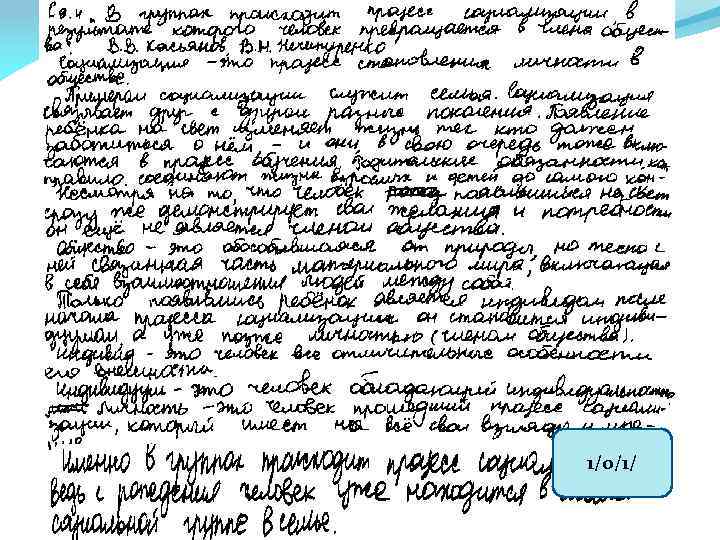 "В группах происходит процесс социализации, в
результате которого человек превращается в члена общест-
ва" В.В. Касьянов, В.Н. Нечипуренко
Социализация – это процесс становления личности в
обществе.
Примером социализации служит семья. Социализация
связывает друг с другом разные поколения. Появление
ребёнка на свет изменяет жизнь тех кто должен
заботиться о нём, – и они, в свою очередь тоже вклю-
чаются в процесс обучения. Родительские обязанности, как
правило, соединяют жизнь взрослых и детей до самого кон-
Несмотря на то, что человек появившись на свет
сразу же демонстрирует свои желания и потребности
он ещё не является членом общества.
Общество – это обособившаяся от природы, но тесно с
ней связанная часть материального мира, включающая
в себя взаимоотношения людей между собой.
Только появившись ребёнок является индивидом после
начала процесса социализации он становится индиви-
дуумом, а уже позже личностью (членом общества).
Индивид – это человек все отличительные особенности
его внешности.
Индивидуум – это человек обладающий индивидуальностью
Личность – это человек прошедший процесс социали-
зации, который имеет на всё свои взгляды и
Именно в группах происходит процесс
ведь с рождения человек уже находится в
социальной группе в семье.
1/0/1/